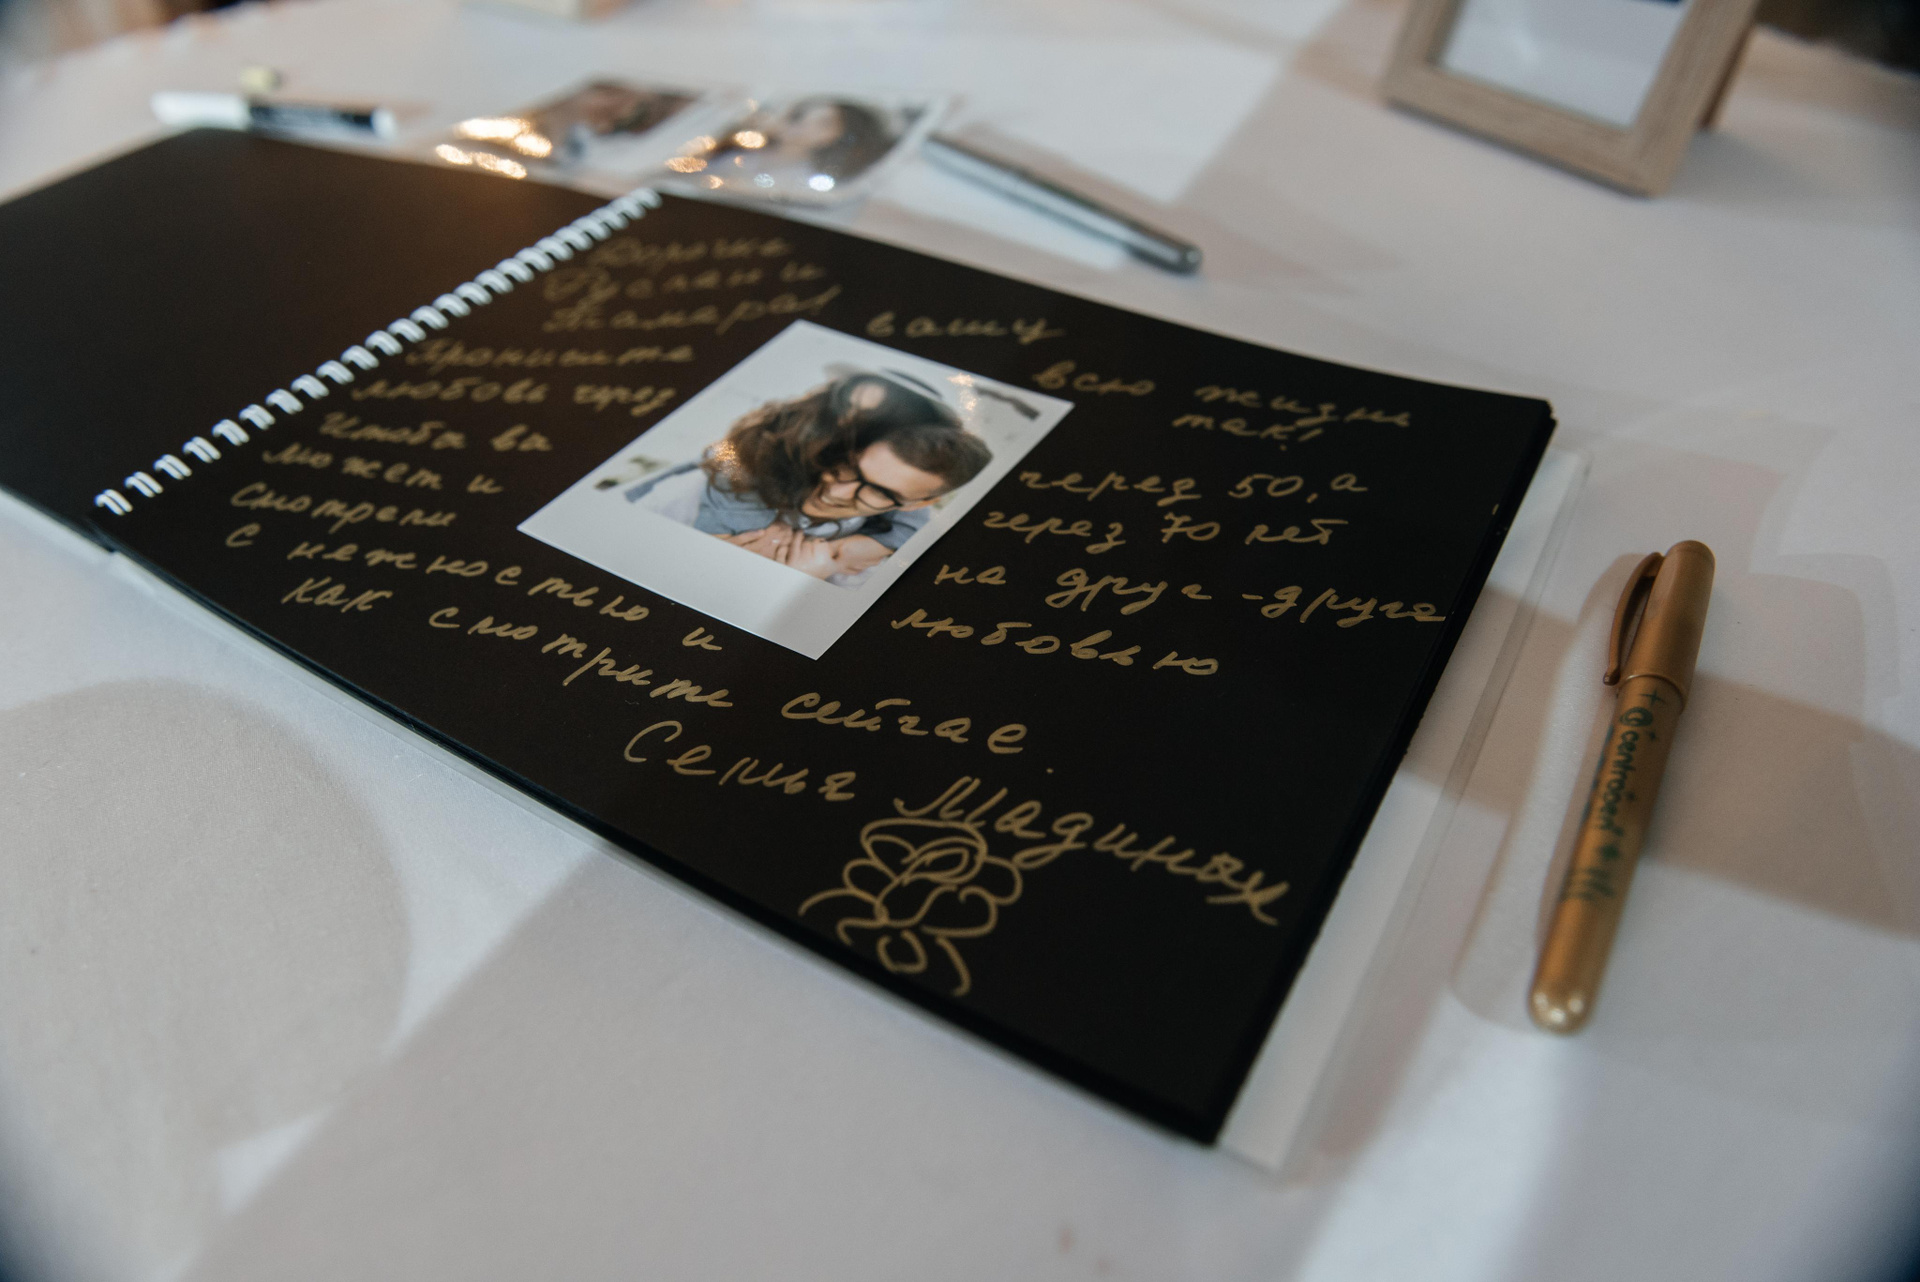 Дорогие
Руслан и
Тамара!
Пронисите вашу
любовь через всю жизнь
так!
Чтобы вы через 50, а
может и через 70 лет
смотрели на друг-друга
с нежностью и любовью
как смотрите сейчас.
Семья Мадиных
centropen